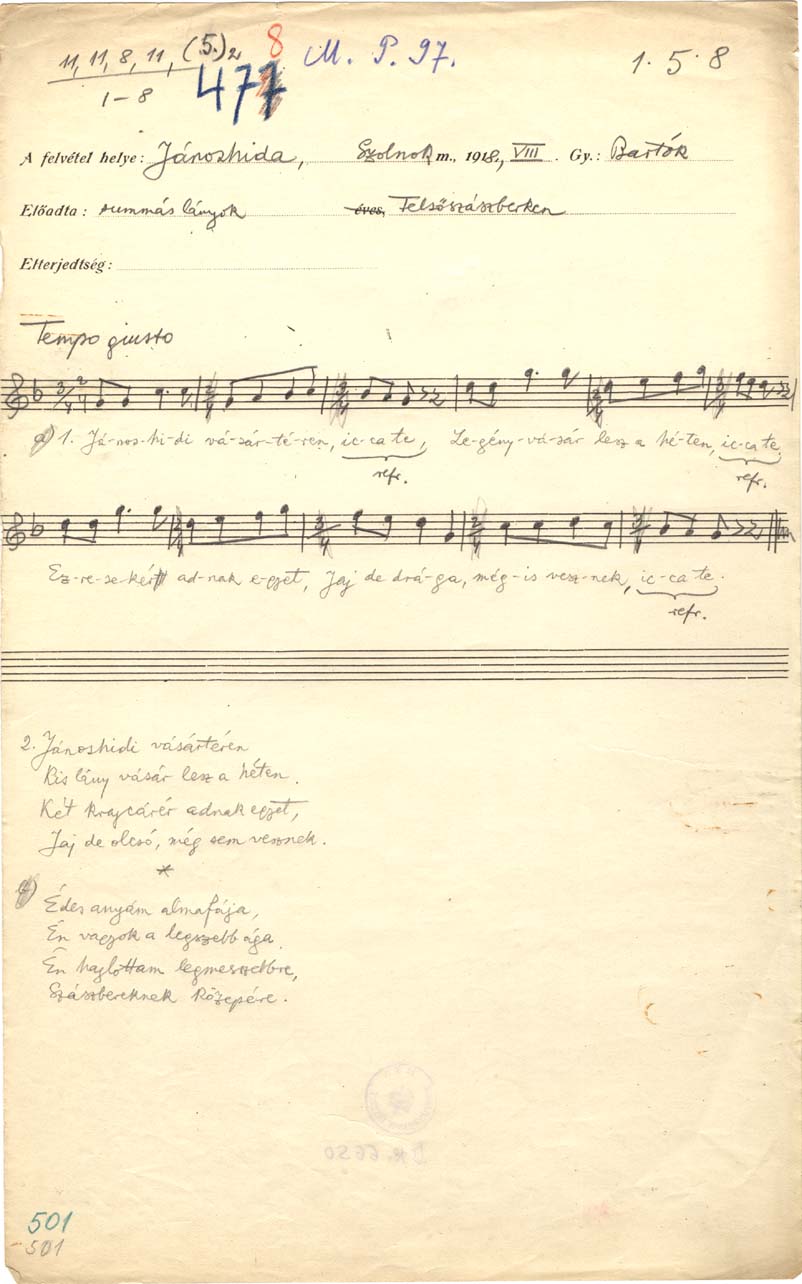 11, 11, 8, 11, (5.)2 8 M. P. 97. 1. 5. 8
1-8 477
A felvétel helye: Jánoshida, Szolnok m., 1918., VIII. Gy.: Bartók
Előadta: summás lányok éves, Felsőszászberken
Elterjedtség:
Tempo giusto
a) 1. Já-nos-hi-di vá-sár-té-ren, ic-ca te, Le-gény-vá-sár lesz a hé-ten, ic-ca te
refr. refr.
Ez-re-se-kért ad-nak e-gyet, Jaj de drá-ga, még-is vesz-nek, ic-ca te.
refr.
2. Jánoshidi vásártéren
Kis lány vásár lesz a héten.
Két krajcárér adnak egyet,
Jaj de olcsó, még sem vesznek.
*
Édes anyám almafája,
Én vagyok a legszebb ága
Én hajlottam legmesszebbre,
Szászbereknek közepére.
501
501